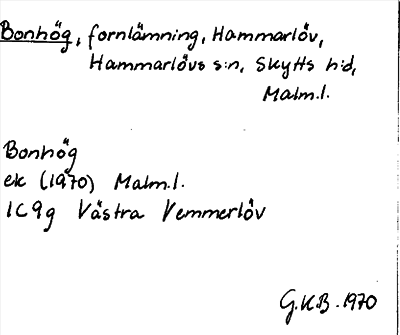 Bonhög, fornlämning, Hammarlöv,
Hammarlövs s:n, Skytts h:d,
Malm.l.
Bonhög
ek (1970) Malm.l.
1C9g Västra Vemmerlöv
G.K.B. 1970